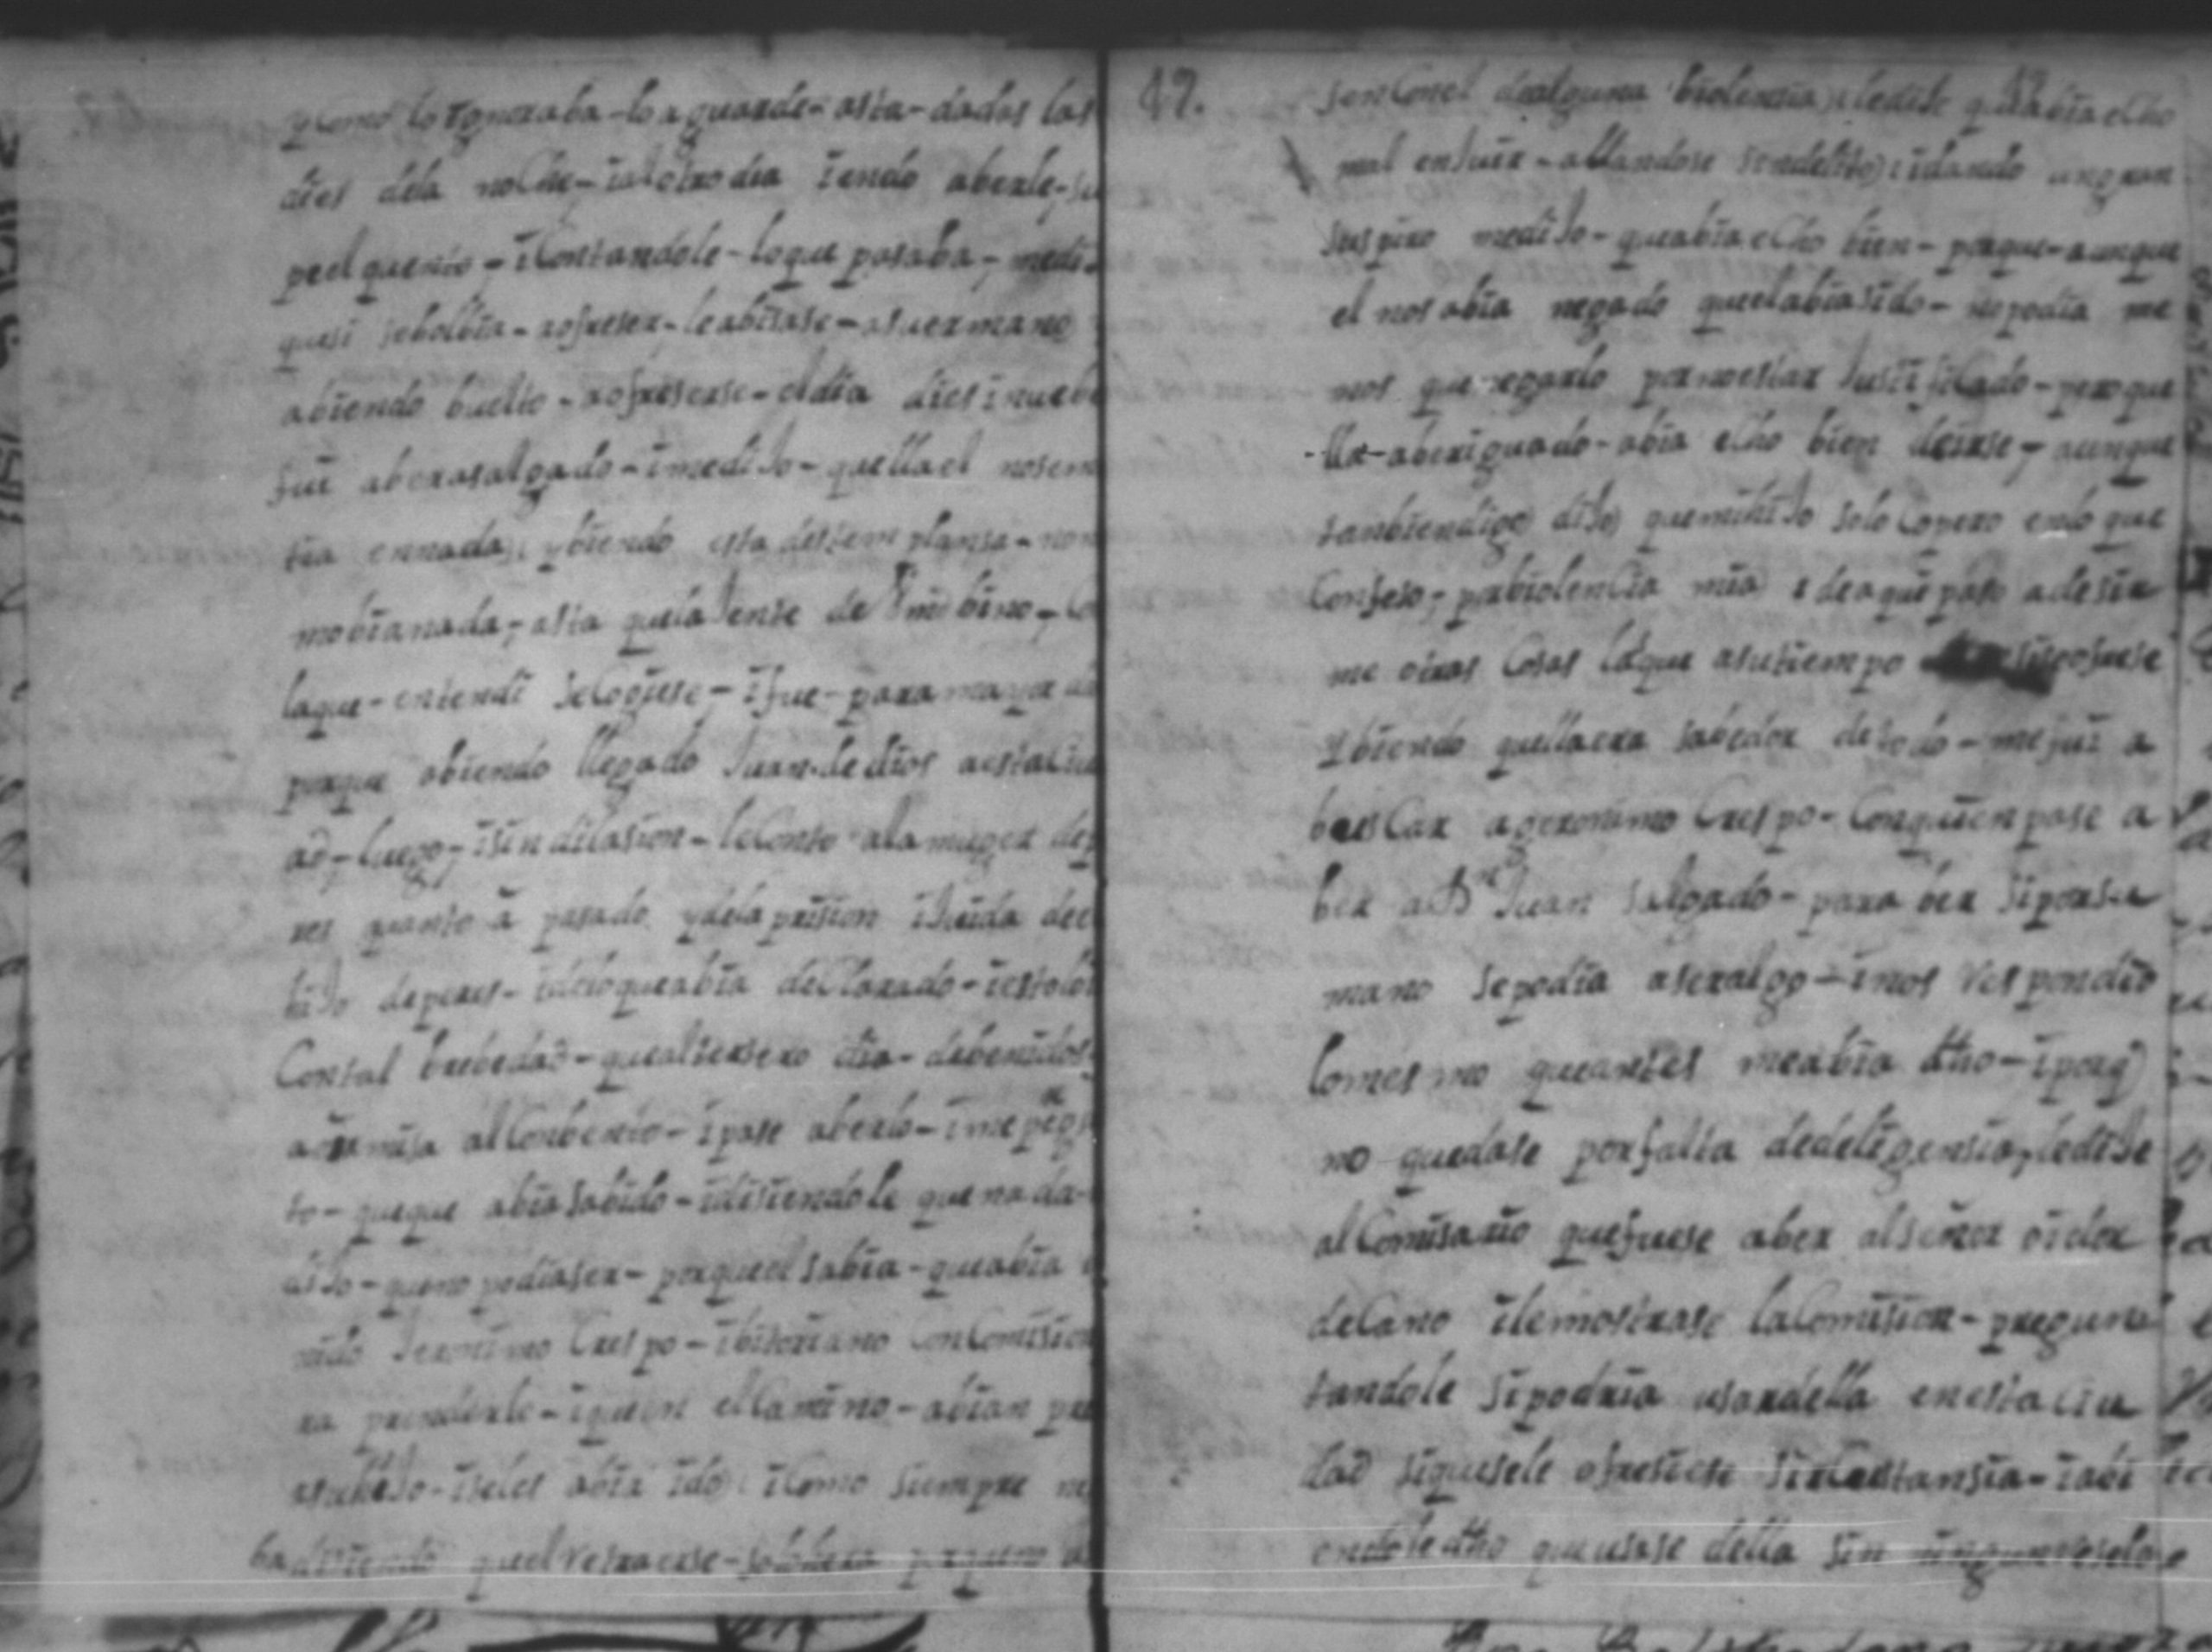 y como lo ygnoraba - lo aguarde - asta - dadas las
dies dela noche - ial otro dia iendo aberle - su
po el quento - i Contandole - loque pasaba - medi
quesi sebolbia - a ofreser - le abisase - asuermano
abiendo buelto - a ofreserse - el dia dies i nuebe
fui aber a salgado - i mediJo - quella el nosem
tia ennada ybiendo esta destemplansa - no
mobia nada - asta quela Jente de bino - Co
laque - entendi seCogiese - i fue - para mayor da
porque abiendo llegado Juan de dios aesta Ciu
ad - luego - isin dilasion - le Conto ala muger de p
res quanto a pasado ydela prision i Juida del
hiJo de peres - idelo queabia deClarado - i esto lo
Contal brebedad - queal tersero dia - de benidos
a misa al Conbento - i pase aberlo - i me
to - queque abia sabido - idisiendole que nada -
diJo - queno podia ser - porque el sabia - queabia
nido Jeronimo Crespo - ibitoriano Con Comision
ra prenderle - i quen el Camino - abian pre
asuhiJo - iseles abia ido i Como siempre ne
ba disiendo quel retraerse - solo era porque no
49. sen Conel dealguna biolensia ledise quabia echo
mal en Juir - allandose sin delito i dando un gran
suspiro mediJo - queabia echo bien - porque - aunque
el nos abia negado quel abia sido - no podia me
nos que negarlo por no estar Justificado - pero que
lla aberiguado - abia echo bien deirse - aunque
tanbien digo diJo quemihiJo solo Copero enlo que
Confeso - por biolencia mia i deaqui paso a desir
me otras Cosas laque asutiempo
Ybiendo quella era sabedor de todo - mejui a
busCar a geronimo Crespo - Conquien pase a
ber a Dn Juan salgado - para ber si por su
mano sepodia aser algo - i nos respondio
lomesmo queantes meabia dho - i porq
no quedase por falta de deligensia ledise
al Comisario quefuese aber alseñor oidor
deCano i lemostrase la Comision - pregun
tandole si podria usar della en esta Ciu
dad siquesele ofresiese sircustansia - iabi
endole dho queusase della sin ningun reselo